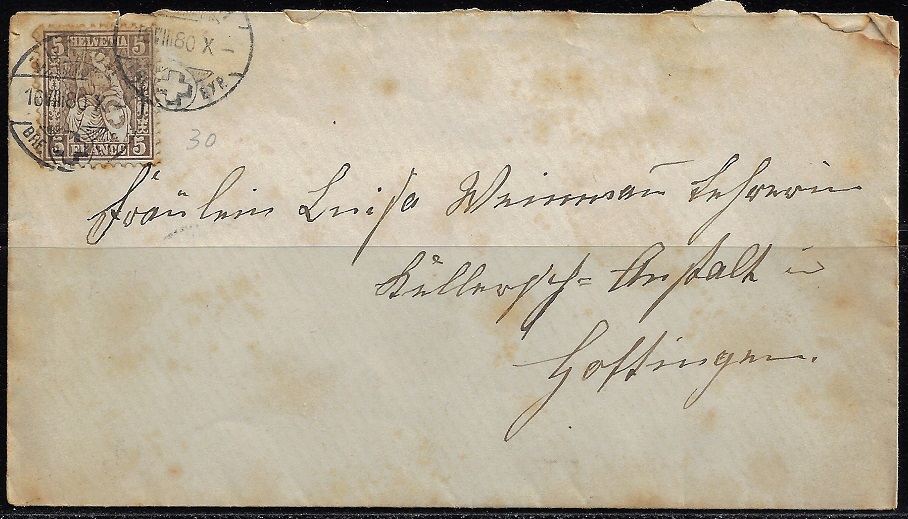 5 HELVETIA 5
5 FRANCO 5
16 VIII 80 X
BRE
VIII 80 X –
EXP.
30
Fräulein Luisa Weinmann Lehrerin
Kellersch= Anstalt in
Hottingen.